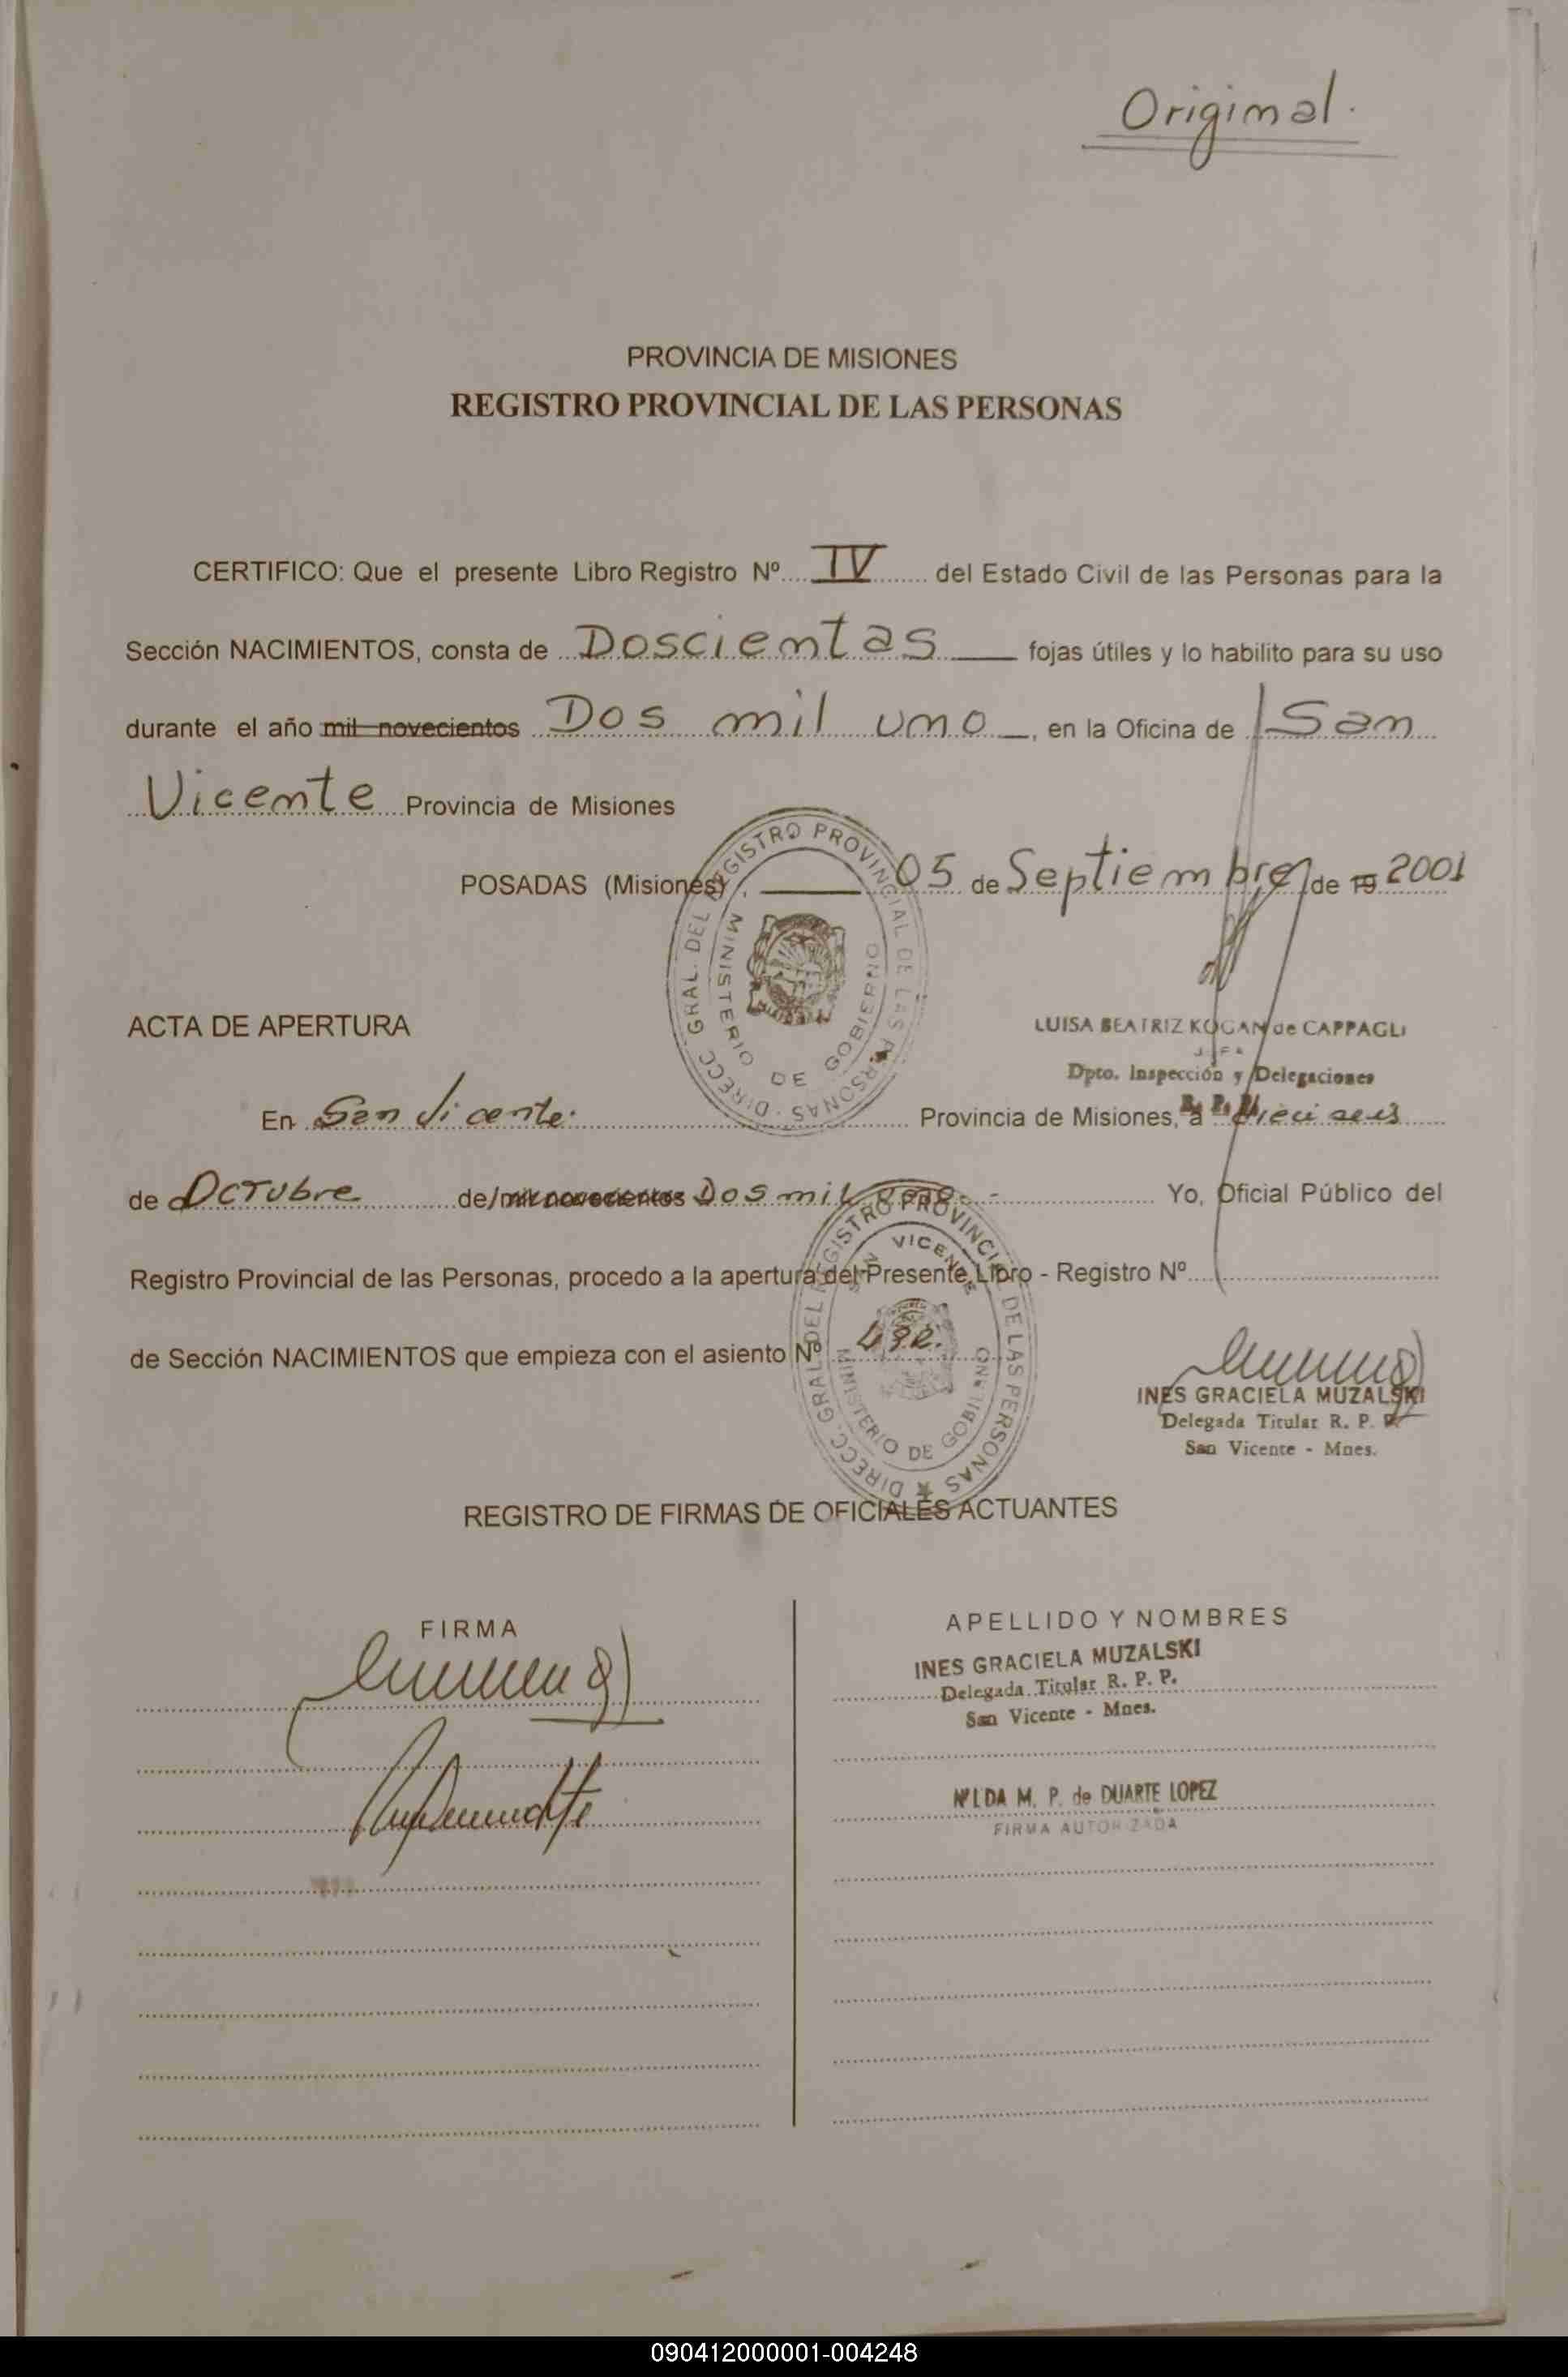 Original.
PROVINCIA DE MISIONES
REGISTRO PROVINCIAL DE LAS PERSONAS
CERTIFICO: Que el presente Libro Registro Nº IV del Estado Civil de las Personas para la
Sección NACIMIENTOS, consta de Doscientas fojas útiles y lo habilito para su uso
durante el año mil novecientos Dos mil uno, en la Oficina de San
Vicente Provincia de Misiones
POSADAS (Misiones) 05 de Septiembre de 19 2001
DIRECC. GRAL. DEL REGISTRO PROVINCIAL DE LAS PERSONAS
MINISTERIO DE GOBIERNO
LUISA BEATRIZ KOGAN de CAPPAGLI
JEFA
Dpto. Inspección y Delegaciones
R. P. P.
ACTA DE APERTURA
En San Vicente. Provincia de Misiones, a dieciseis
de Octubre de/mil novecientos Dos mil uno.- Yo, Oficial Público del
Registro Provincial de las Personas, procedo a la apertura del Presente Libro - Registro Nº
de Sección NACIMIENTOS que empieza con el asiento Nº
DIRECC. GRAL. DEL REGISTRO PROVINCIAL DE LAS PERSONAS
SAN VICENTE
MINISTERIO DE GOBIERNO
INES GRACIELA MUZALSKI
Delegada Titular R. P. P.
San Vicente - Mnes.
REGISTRO DE FIRMAS DE OFICIALES ACTUANTES
FIRMA
APELLIDO Y NOMBRES
INES GRACIELA MUZALSKI
Delegada Titular R. P. P.
San Vicente - Mnes.
NILDA M. P. de DUARTE LOPEZ
FIRMA AUTORIZADA
090412000001-004248